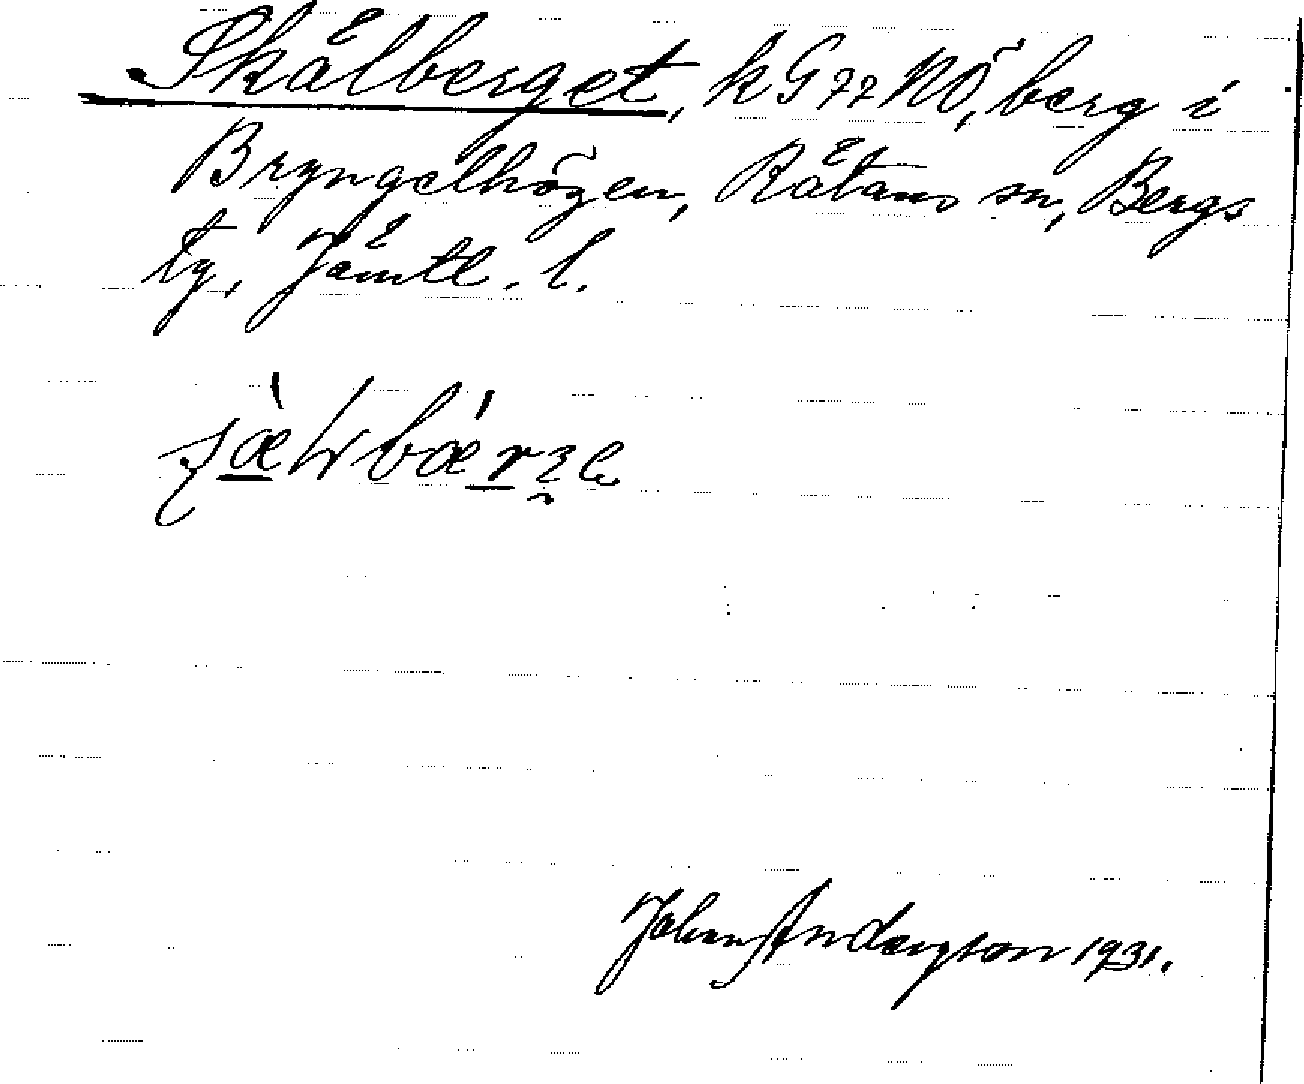 Skålberget, k G 72 NÖ, berg i
Bryngelhögen, Rätans sn, Bergs
tg, Jämtl. l.
Johan Anderson 1931.